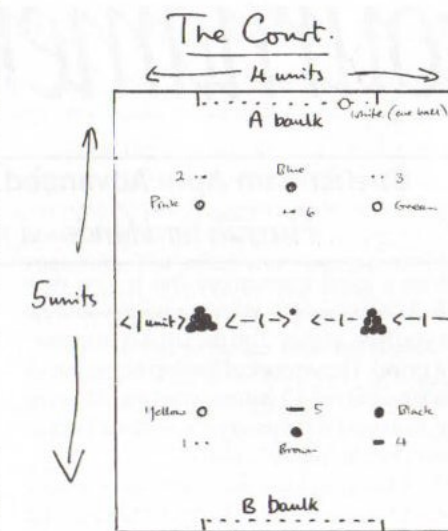 The Court.
4 units
A baulk
White (cue ball)
2
Blue
3
Pink
6
Green
5 units
1 unit
1
1
1
Yellow
5
Black
1
Brown
4
B baulk